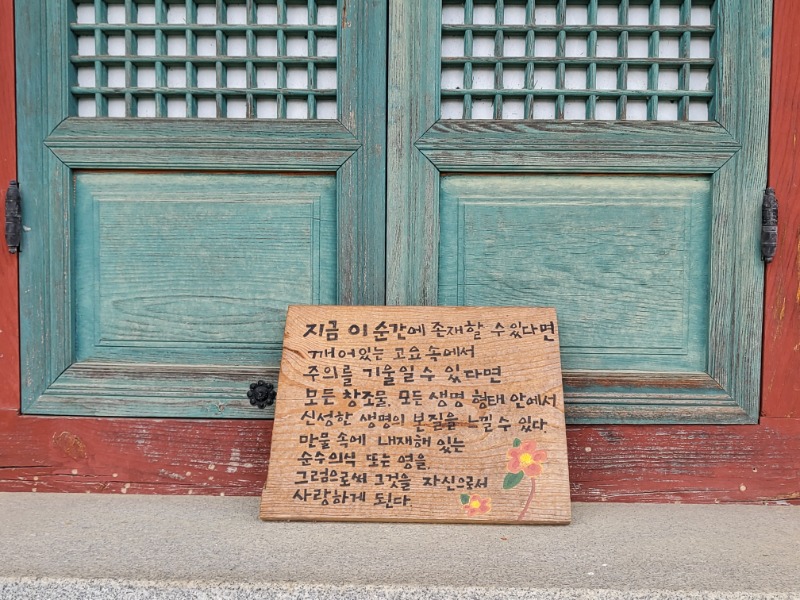 지금 이 순간에 존재할 수 있다면
깨어있는 고요 속에서
주의를 기울일 수 있다면
모든 창조물, 모든 생명 형태 안에서
신성한 생명의 본질을 느낄 수 있다.
만물 속에 내재해 있는
순수의식 또는 영을.
그럼으로써 그것을 자신으로서
사랑하게 된다.